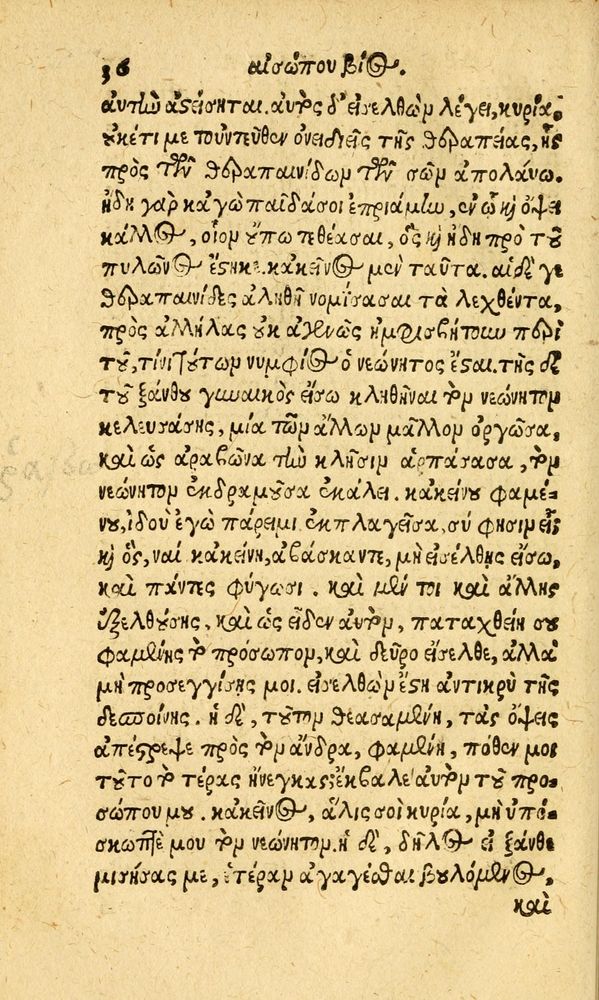 36 αἰσώπου βίος.
αὐτῷ ἀστείσηται. αὐτὸς δ' εἰσελθὼν λέγει, κυρία,
οὐκέτι με τοὐντεῦθεν ὀνειδιεῖς τῆς θεραπείας, ἧς
πρὸς τῶν θεραπαινίδων τῶν σῶν ἀπολαύω.
ἤδη γὰρ κἀγὼ παῖδά σοι ἐπριάμην, ἐν ᾧ καὶ ὄψει
κάλλος, οἷον οὔπω τεθέασαι, ὃς καὶ ἤδη πρὸ τοῦ
πυλῶνος ἕστηκε. κἀκεῖνος μὲν ταῦτα. αἱ δέ γε
θεραπαινίδες ἀληθῆ νομίσασαι τὰ λεχθέντα,
πρὸς ἀλλήλας οὐκ ἀγενῶς ἠμφισβήτουν περὶ
τοῦ, τίνι τούτων νυμφίος ὁ νεώνητος ἔσται. τῆς δὲ
τοῦ ξάνθου γυναικὸς εἴσω κληθῆναι τὸν νεώνητον
κελευσάσης, μία τῶν ἄλλων μᾶλλον ὀργῶσα,
καὶ ὡς ἀραβῶνα τὴν κλῆσιν ἁρπάσασα, τὸν
νεώνητον ἐκδραμοῦσα ἐκάλει. κἀκείνου φαμέ-
νου, ἰδοὺ ἐγὼ πάρειμι, ἐκπλαγεῖσα, σύ φησιν εἶ;
καὶ ὅς, ναί. κἀκείνη, ἀβάσκαντε, μὴ εἰσέλθης εἴσω,
καὶ πάντες φύγωσι. καὶ μέν τοι καὶ ἄλλης
ἐξελθούσης, καὶ ὡς εἶδεν αὐτὸν, παταχθείη σου
φαμένης τὸ πρόσωπον, καὶ δεῦρο εἴσελθε, ἀλλὰ
μὴ προσεγγίσης μοι. εἰσελθὼν ἔστη ἀντικρὺ τῆς
δεσποίνης. ἡ δὲ, τοῦτον θεασαμένη, τὰς ὄψεις
ἀπέστρεψε πρὸς τὸν ἄνδρα, φαμένη, πόθεν μοι
τοῦτο τὸ τέρας ἤνεγκας; ἔκβαλε αὐτὸν τοῦ προ-
σώπου μου. κἀκεῖνος, ἅλις σοι κυρία, μὴ ὑπό-
σκωπτέ μου τὸν νεώνητον. ἡ δὲ, δῆλος εἶ ξάνθε
μισήσας με, ἑτέραν ἀγαγέσθαι βουλόμενος,
καὶ